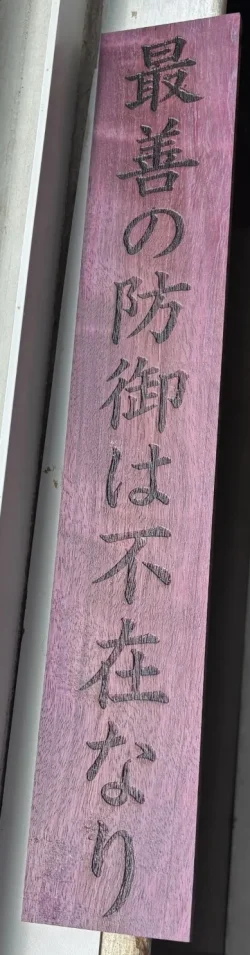 最善の防御は不在なり